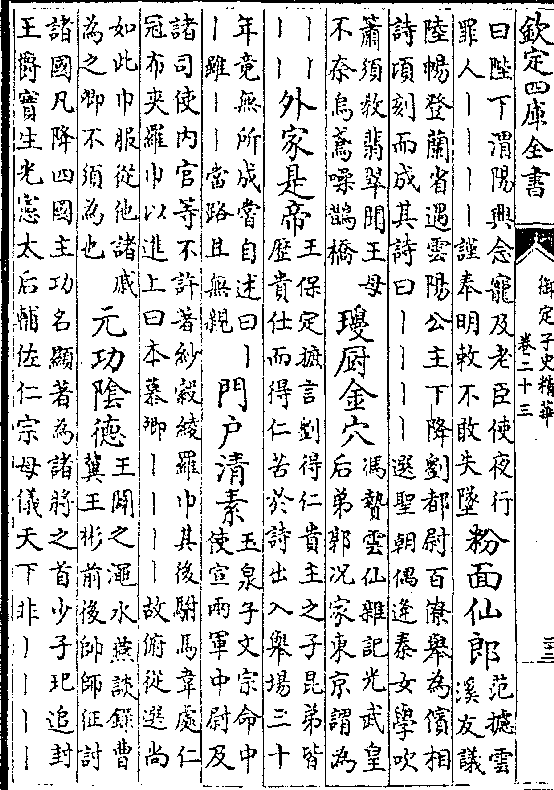 欽定四庫全書
御定子史精華
卷二十三
曰陛下渭陽興念寵及老臣使夜行
罪人丨丨丨丨謹奉明敕不敢失墜
粉面仙郎
范攄雲
溪友議
陸暢登蘭省遇雲陽公主下降劉都尉百僚舉為儐相
詩頃刻而成其詩曰丨丨丨丨選聖朝偶逢秦女學吹
簫須教翡翠聞王母
不奈烏鳶噪鵲橋
瓊厨金穴
馮贄雲仙雜記光武皇
后弟郭况家東京謂為
丨丨
丨丨
外家是帝
王保定摭言劉得仁貴主之子昆弟皆
歷貴仕而得仁苦於詩出入舉場三十
年竟無所成當自述曰丨
丨雖丨丨當路且無親
門户清素
玉泉子文宗命中
使宣兩軍中尉及
諸司使内官等不許著紗縠綾羅巾其後駙馬韋處仁
冠布夾羅巾以進上曰本慕卿丨丨丨丨故俯從選尚
如此巾服從他諸戚
為之卿不須為也
元功陰德
王闢之澠水燕談錄曹
冀王彬前後帥師征討
諸國凡降四國主功名顯著為諸將之首少子玘追封
王爵實生光憲太后輔佐仁宗母儀天下非丨丨丨丨